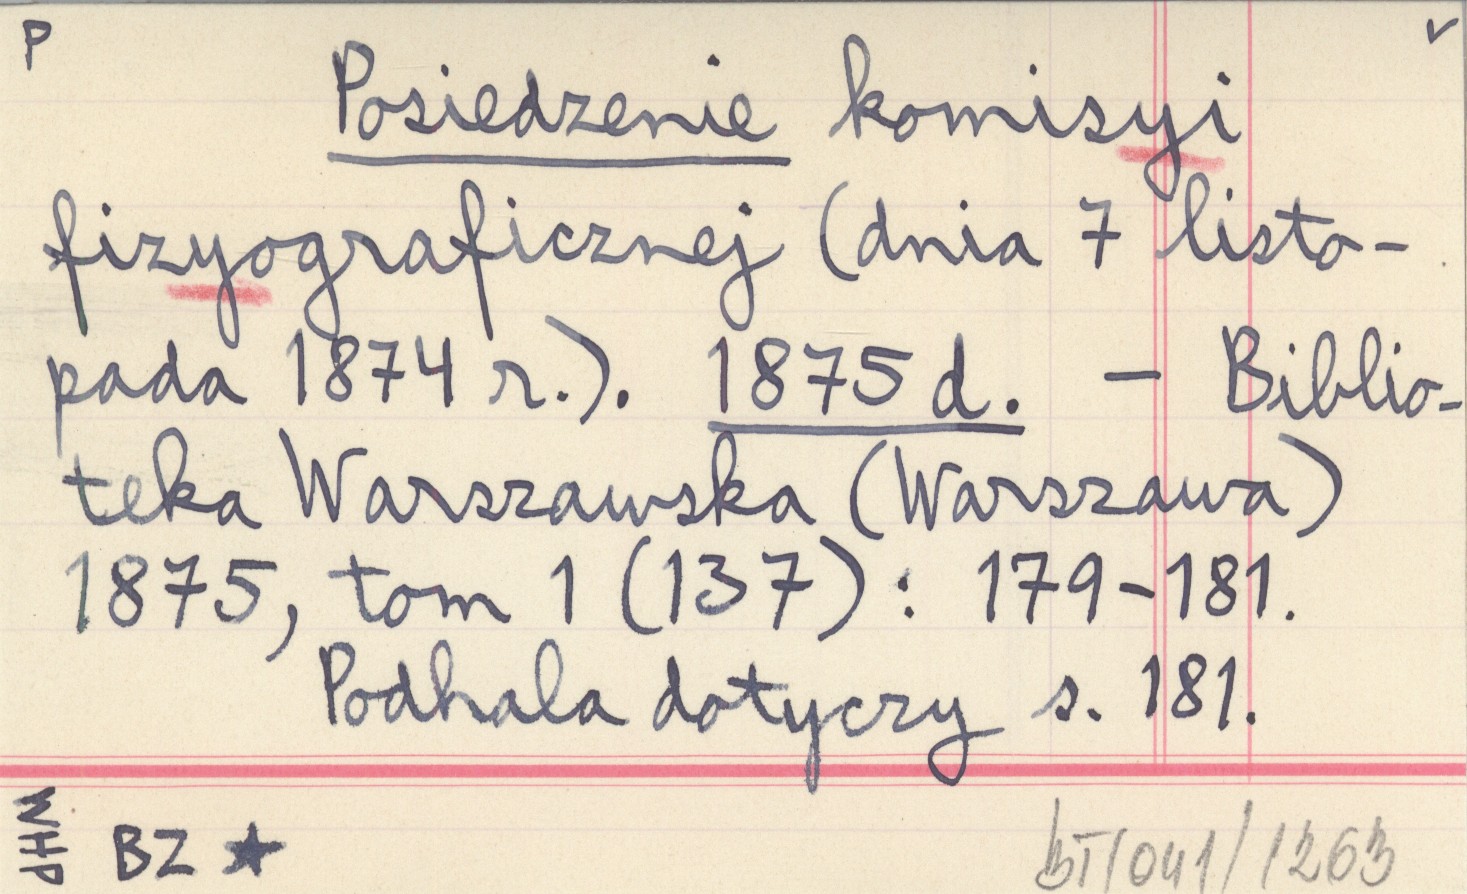 P
v
Posiedzenie komisyi
fizyograficznej (dnia 7 listo-
pada 1874 r.). 1875 d. - Biblio-
teka Warszawska (Warszawa)
1875, tom 1 (137): 179-181.
Podhala dotyczy s. 181.
WHP
BZ ★
BT/041/1263